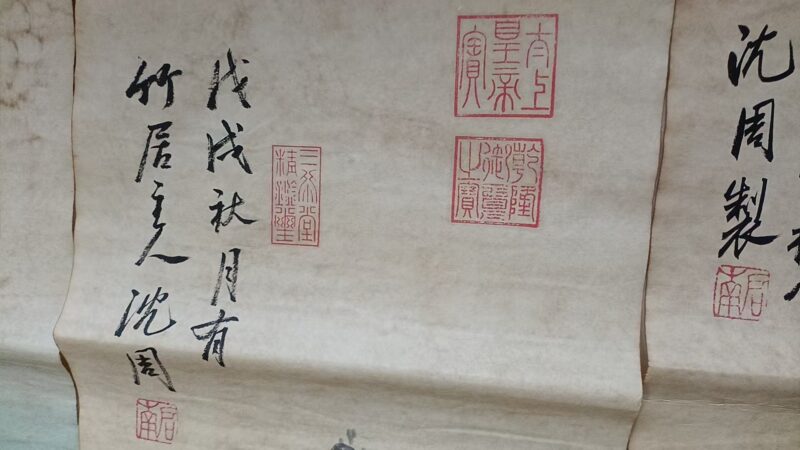 沈周製
启南
太上皇帝寶
乾隆御覽之寶
三希堂精鑑璽
戊戌秋月有
竹居主人沈周
启南